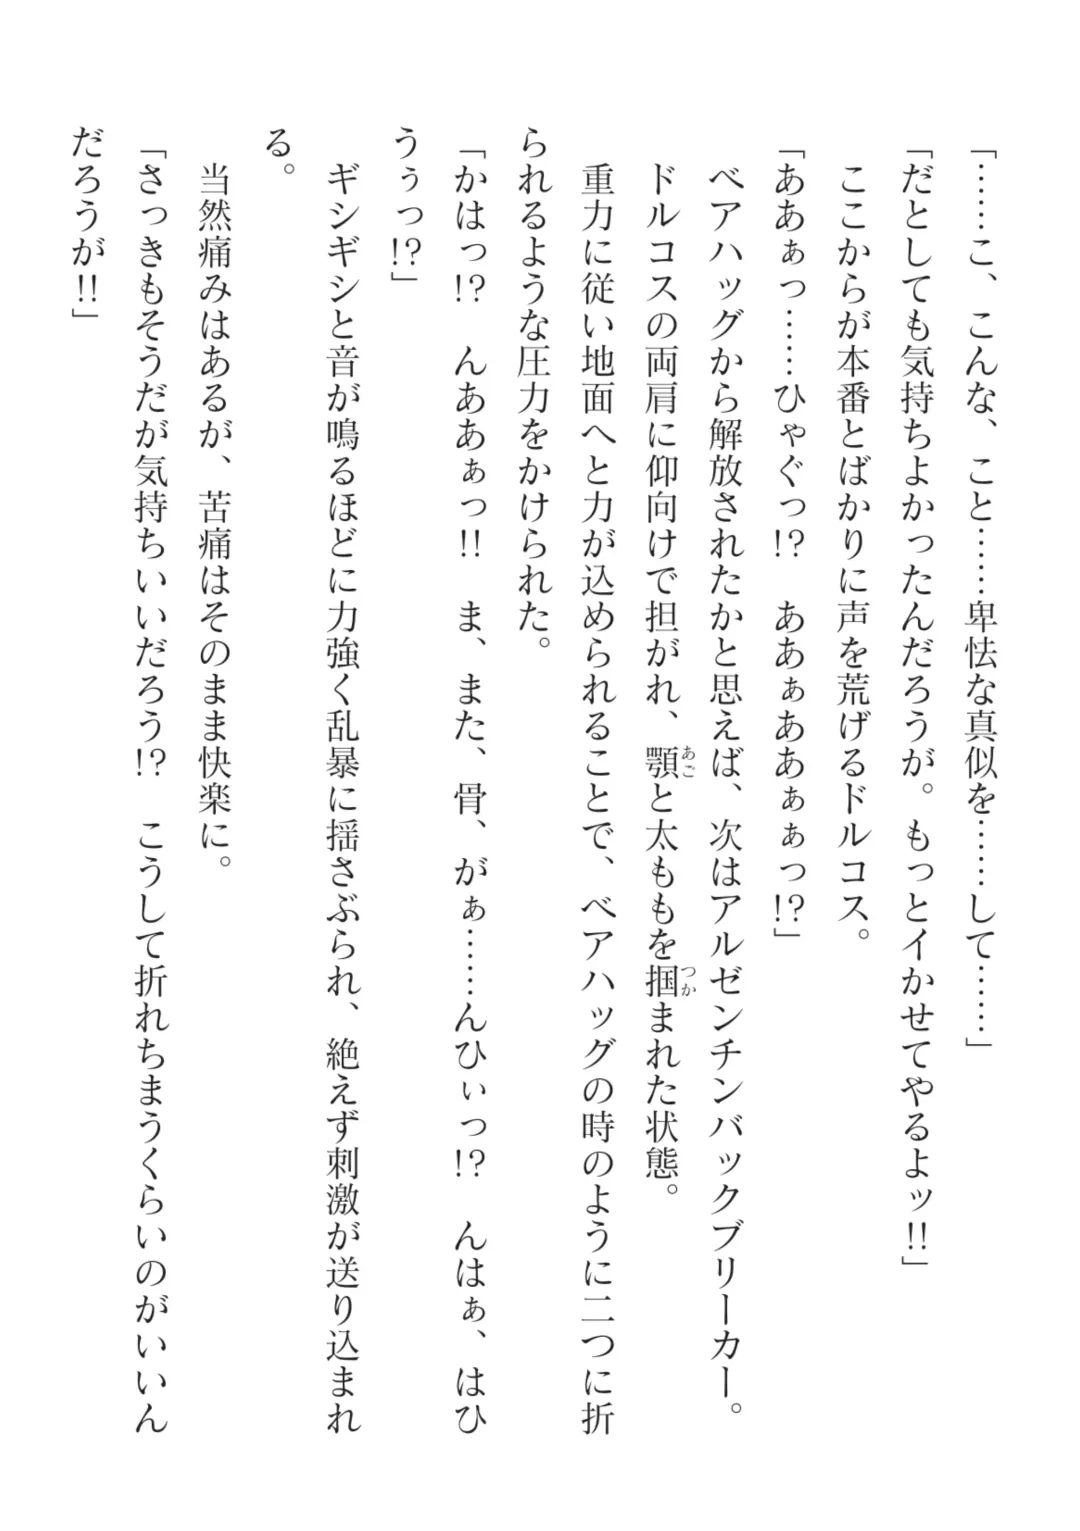 「……こ、こんな、こと……卑怯な真似を……して……」
「だとしても気持ちよかったんだろうが。もっとイかせてやるよッ!!」
　ここからが本番とばかりに声を荒げるドルコス。
「ああぁっ……ひゃぐっ!?　ああぁああぁぁっ!?」
　ベアハッグから解放されたかと思えば、次はアルゼンチンバックブリーカー。
　ドルコスの両肩に仰向けで担がれ、顎と太ももを掴まれた状態。
あご
つか
　重力に従い地面へと力が込められることで、ベアハッグの時のように二つに折
られるような圧力をかけられた。
「かはっ!?　んああぁっ!!　ま、また、骨、がぁ……んひぃっ!?　んはぁ、はひ
うぅっ!?」
　ギシギシと音が鳴るほどに力強く乱暴に揺さぶられ、絶えず刺激が送り込まれ
る。
　当然痛みはあるが、苦痛はそのまま快楽に。
「さっきもそうだが気持ちいいだろう!?　こうして折れちまうくらいのがいいん
だろうが!!」